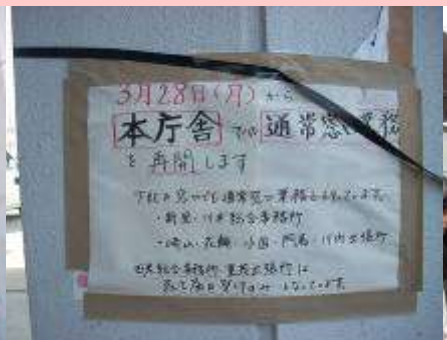 3月28日(月)から
本庁舎での通常窓口業務
を再開します
下記の窓口でも通常窓口業務を行っています
・新里・川井総合事務所
・崎山・花輪・小国・門馬・川内出張所
田老総合事務所・重茂出張所は